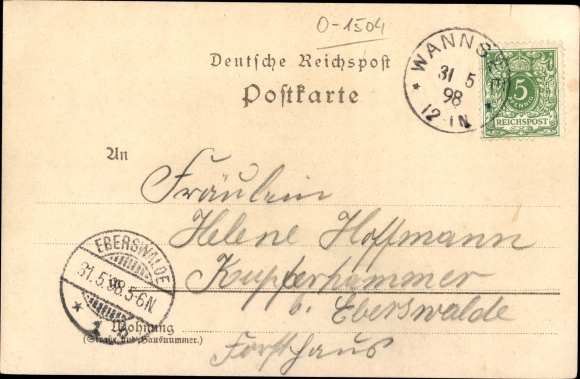 0-1504
Deutsche Reichspost
Postkarte
WANNSEE
31 5
98
12-1N
5
PFENNIG
REICHSPOST
An
Fräulein
Helene Hoffmann
Kupferhammer
b. Eberswalde
Forsthaus
EBERSWALDE
31.5.98.5-6N.
Wohnung
(Straße und Hausnummer.)